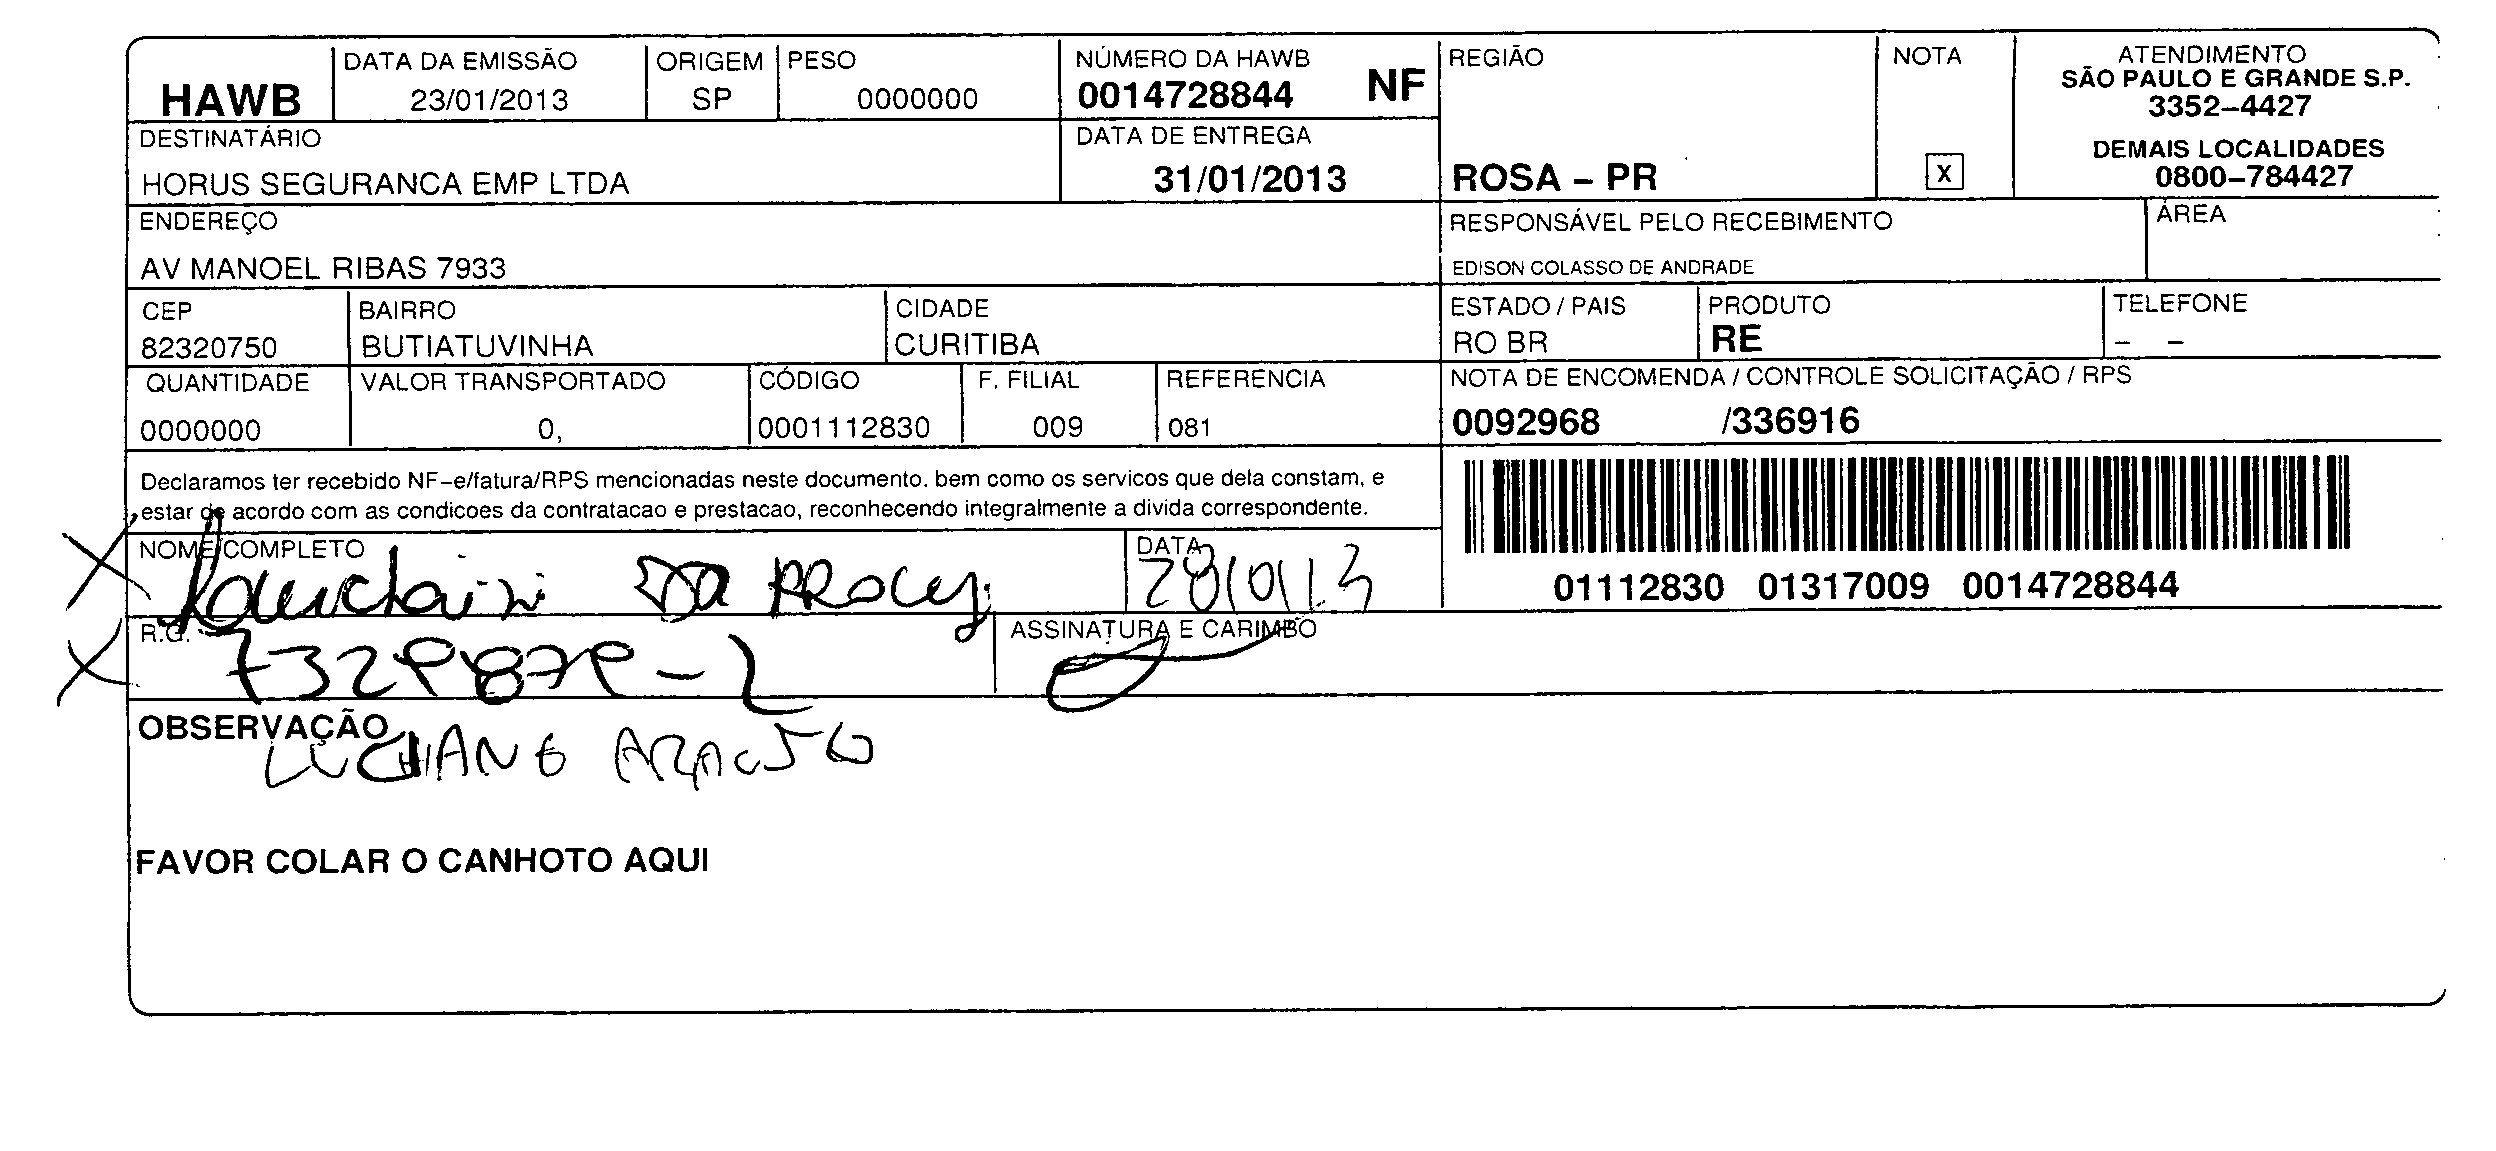 HAWB
DATA DA EMISSÃO
23/01/2013
ORIGEM
SP
PESO
0000000
NÚMERO DA HAWB
0014728844 NF
DATA DE ENTREGA
31/01/2013
REGIÃO
ROSA – PR
NOTA
X
ATENDIMENTO
SÃO PAULO E GRANDE S.P.
3352–4427
DEMAIS LOCALIDADES
0800–784427
DESTINATÁRIO
HORUS SEGURANCA EMP LTDA
ENDEREÇO
AV MANOEL RIBAS 7933
RESPONSÁVEL PELO RECEBIMENTO
EDISON COLASSO DE ANDRADE
ÁREA
CEP
82320750
BAIRRO
BUTIATUVINHA
CIDADE
CURITIBA
ESTADO / PAIS
RO BR
PRODUTO
RE
TELEFONE
– –
QUANTIDADE
0000000
VALOR TRANSPORTADO
0,
CÓDIGO
0001112830
F. FILIAL
009
REFERENCIA
081
NOTA DE ENCOMENDA / CONTROLE SOLICITAÇÃO / RPS
0092968 /336916
Declaramos ter recebido NF–e/fatura/RPS mencionadas neste documento. bem como os servicos que dela constam, e
estar de acordo com as condicoes da contratacao e prestacao, reconhecendo integralmente a divida correspondente.
01112830 01317009 0014728844
NOME COMPLETO
DA
DATA
R.G.
ASSINATURA E CARIMBO
OBSERVAÇÃO
FAVOR COLAR O CANHOTO AQUI